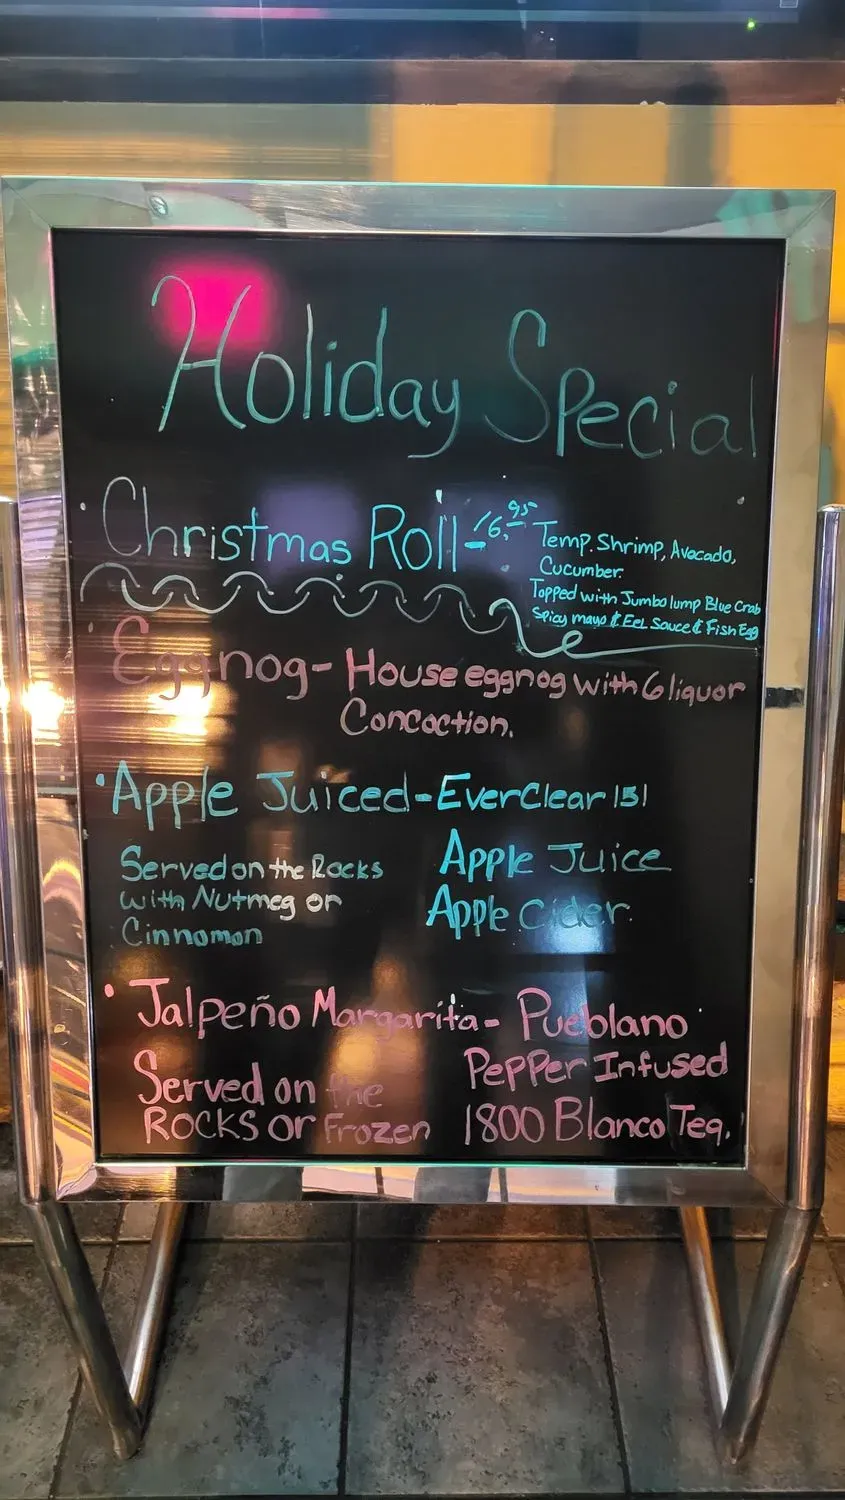 Holiday Special
Christmas Roll - 16.95
Temp. Shrimp, Avocado,
Cucumber.
Topped with Jumbo lump Blue Crab
Spicy mayo & Eel Sauce & Fish Egg
Eggnog - House eggnog with 6 liquor
Concoction.
Apple Juiced - EverClear 151
Apple Juice
Apple Cider.
Served on the Rocks
with Nutmeg or
Cinnomon
Jalpeño Margarita - Pueblano
Pepper Infused
1800 Blanco Teq.
Served on the
Rocks or Frozen